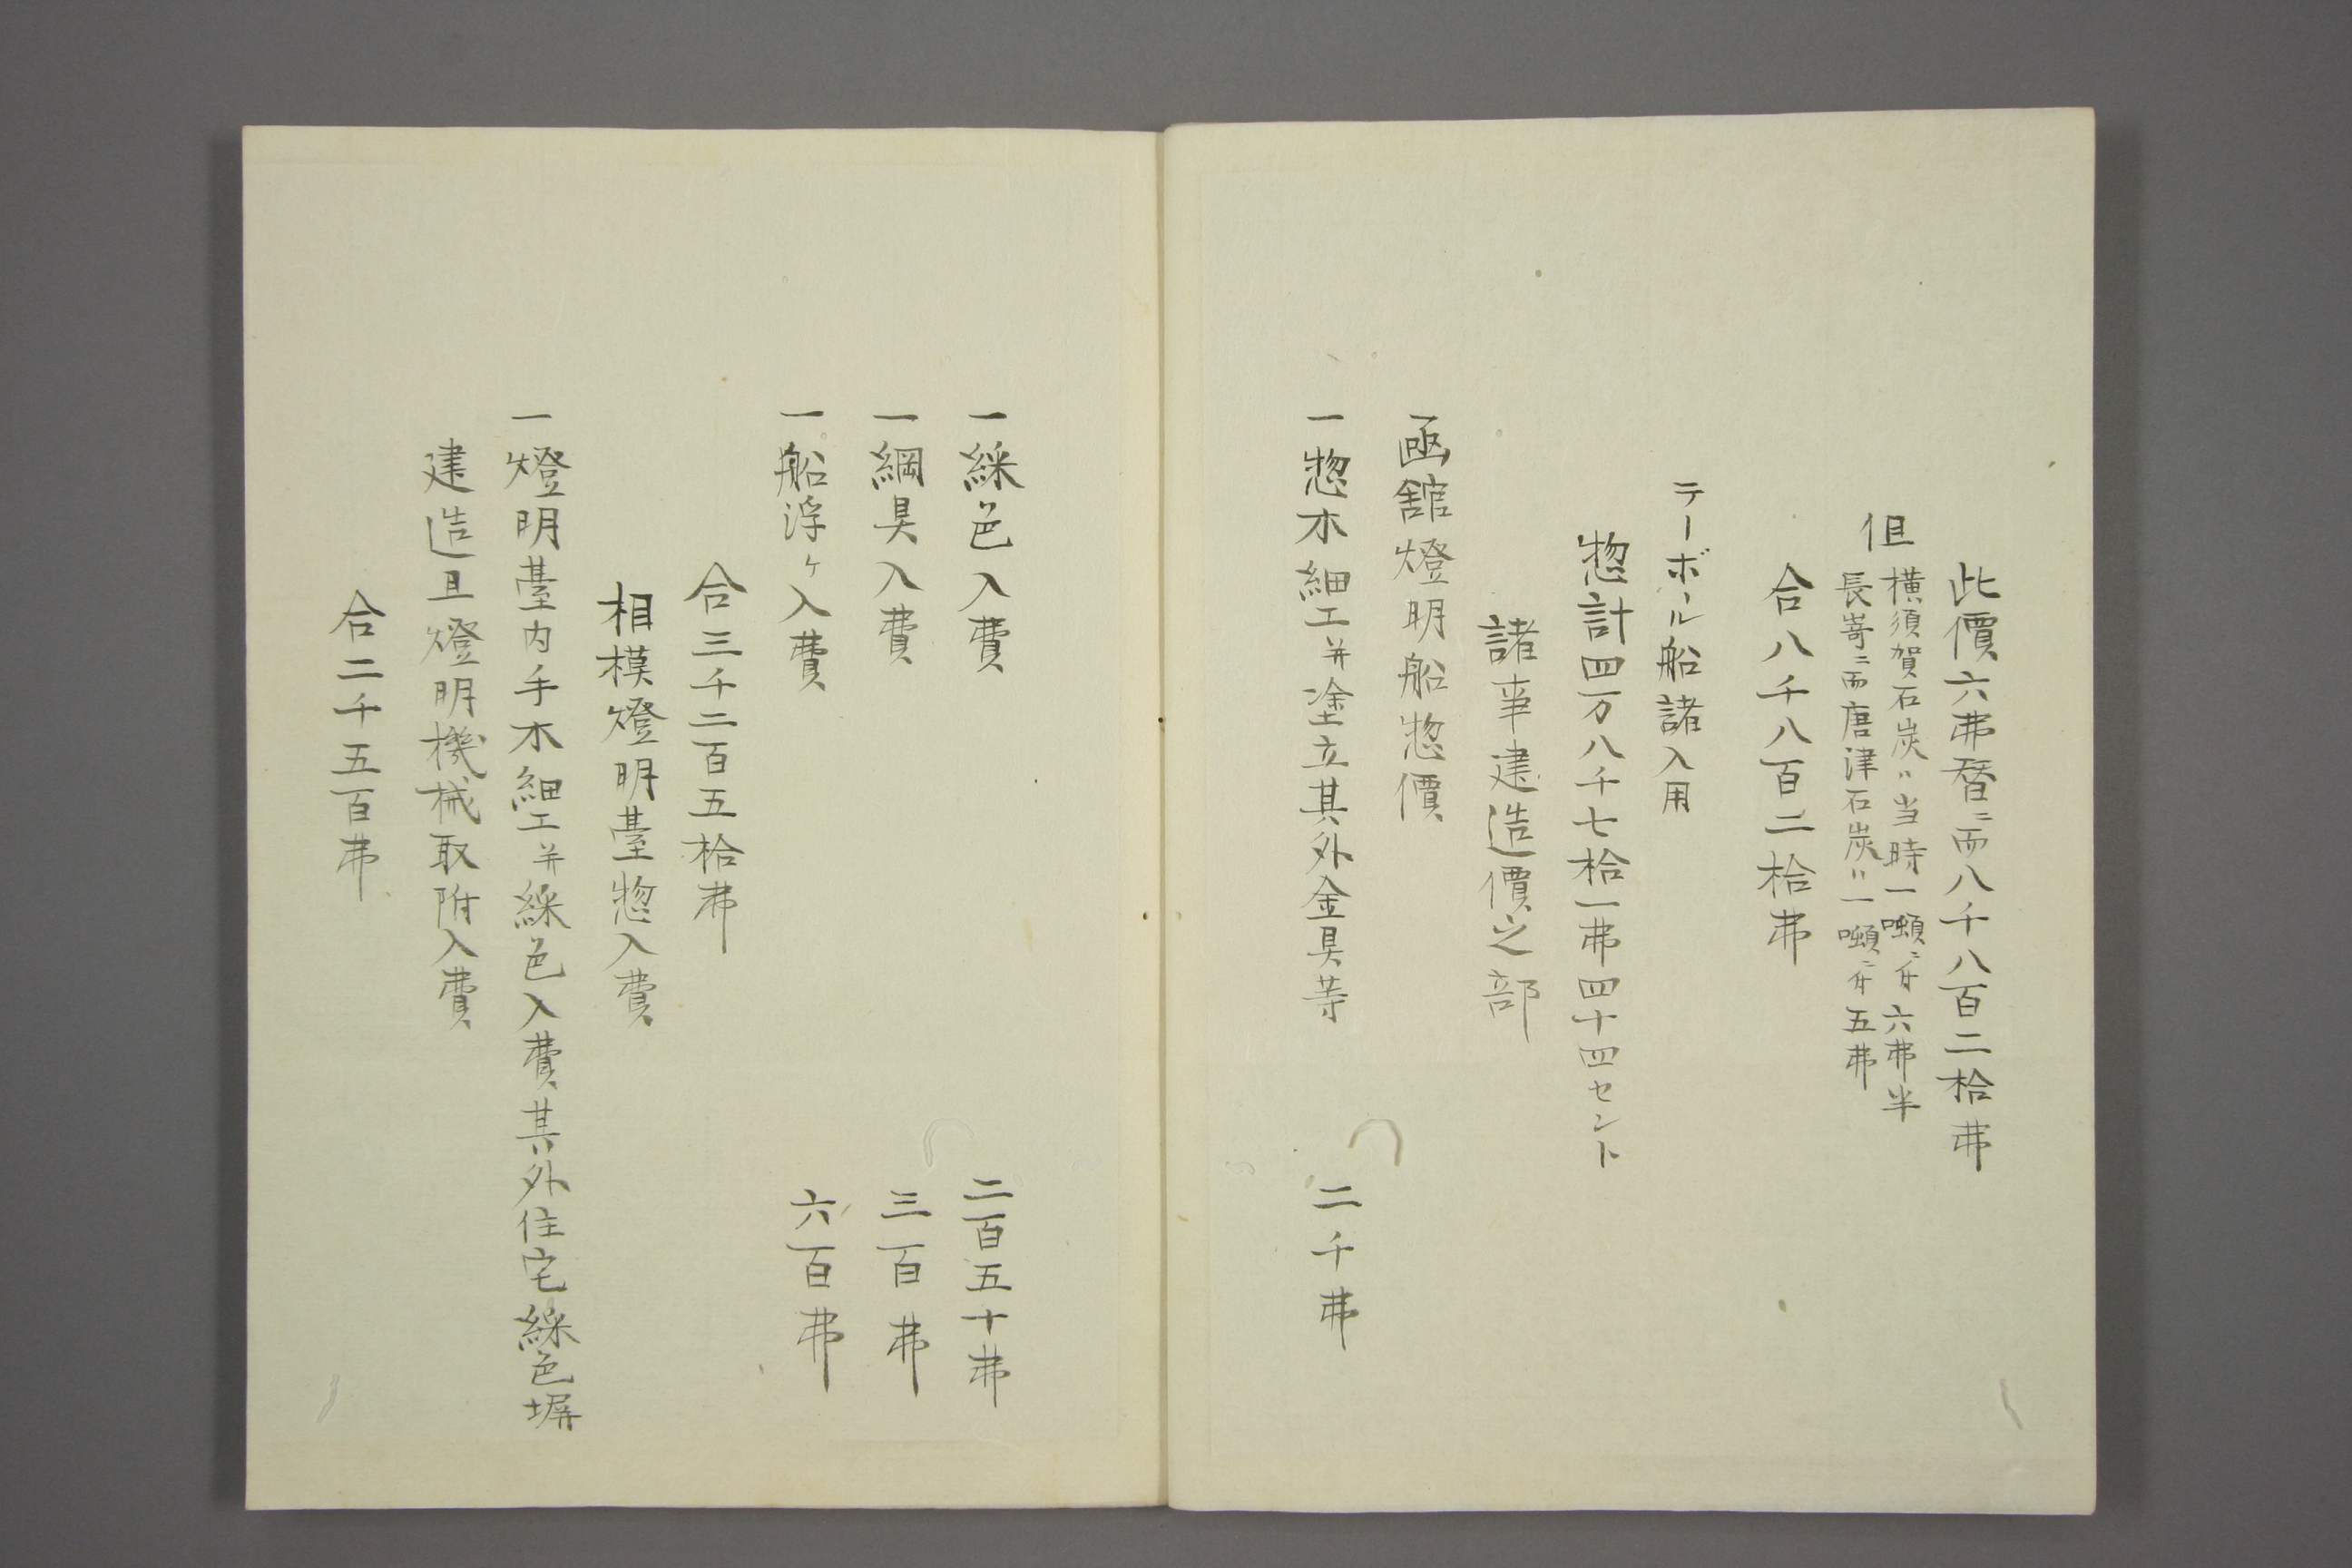 此價六弗替ニ而八千八百二拾弗
但
横須賀石炭ハ当時一噸ニ付六弗半
長嵜ニ而唐津石炭ハ一噸ニ付五弗
合八千八百二拾弗
テーボール船諸入用
惣計四万八千七拾一弗四十四セント
諸事建造價之部
函館燈明船惣價
一惣木細工并塗立其外金具等 二千弗
一綵色入費 二百五十弗
一綱具入費 三百弗
一船浮ケ入費 六百弗
合三千二百五拾弗
相模燈明臺惣入費
一燈明臺内手木細工并綵色入費其外住宅綵色塀
建造且燈明機械取附入費
合二千五百弗